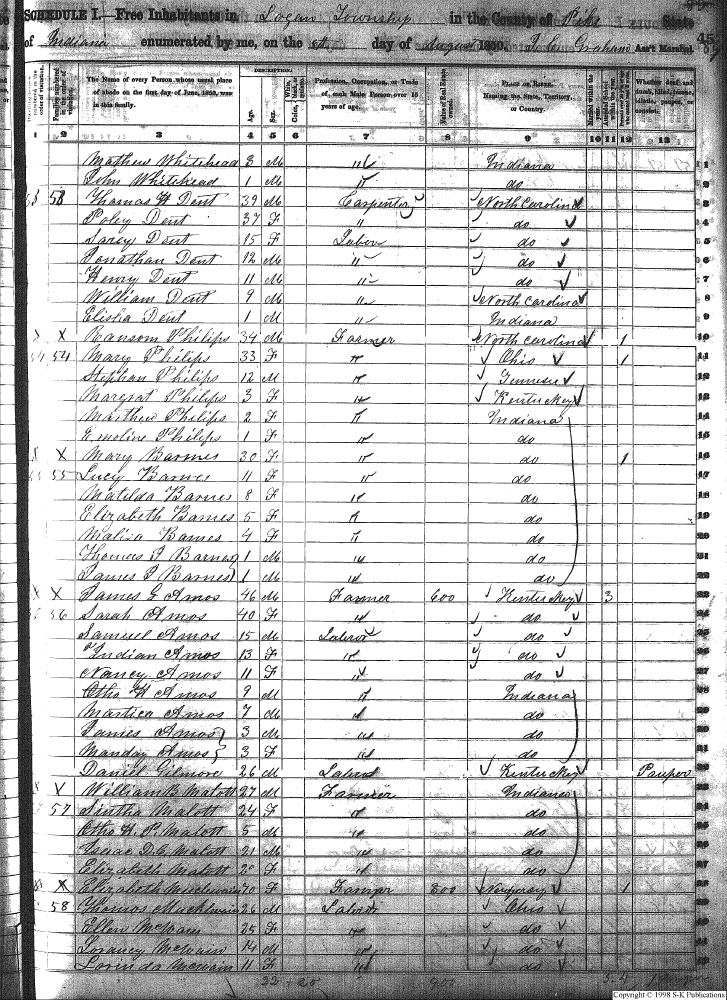 SCHEDULE I.—Free Inhabitants in Logan Township in the County of Pike State
of Indiana enumerated by me, on the 8th day of August 1850. J. C. Graham Ass't Marshal. 45
DESCRIPTION.
The Name of every Person whose usual place of abode on the first day of June, 1850, was in this family.
Age.
Sex.
Profession, Occupation, or Trade of each Male Person over 15 years of age.
Value of Real Estate owned.
PLACE OF BIRTH. Naming the State, Territory, or Country.
Married within the year.
Whether deaf and dumb, blind, insane, idiotic, pauper, or convict.
1 2 3 4 5 6 7 8 9 10 11 12 13
Mathew Whitehead 3 M " Indiana 1
John Whitehead 1 M " do 2
53 Thomas H Dent 39 M Carpenter North Carolina 3
Poley Dent 37 F " do 4
Sarey Dent 15 F Labor do 5
Jonathan Dent 12 M " do 6
Henry Dent 11 M " do 7
William Dent 9 M " North Carolina 8
Elisha Dent 1 M " Indiana 9
X X Ransom Philips 34 M Farmer North Carolina 1 10
54 54 Mary Philips 33 F " Ohio 1 11
Stephan Philips 12 M " Tennessee 12
Margrat Philips 3 F " Kentuckey 13
Marthew Philips 2 F " Indiana 14
Emeline Philips 1 F " do 15
X X Mary Barnes 30 F " do 1 16
55 55 Lucy Barnes 11 F " do 17
Matilda Barnes 8 F " do 18
Elizabeth Barnes 5 F " do 19
Malisa Barnes 4 F " do 20
Thomas J Barnes 1 M " do 21
James P Barnes 1 M " do 22
X X James E Amos 46 M Farmer 600 Kentuckey 3 23
56 Sarah Amos 40 F " do 24
Samuel Amos 15 M Labor do 25
Indian Amos 13 F " do 26
Nancy Amos 11 F " do 27
Otho H Amos 9 M " Indiana 28
Martica Amos 7 M " do 29
James Amos 3 M " do 30
Manday Amos 3 F " do 31
Daniel Gilmore 26 M Labor Kentuckey Pauper 32
William B Malott 27 M Farmer Indiana 33
57 Sintha Malott 24 F " do 34
Otho H. P. Malott 5 M " do 35
Isaac D. C. Malott 21 M " do 36
Elizabeth Malott F " do 37
X Elizabeth 70 F Farmer 800 1 38
58 Thomas 26 M Labor Ohio 39
Ellen McWain 25 F " do 40
McWain 14 M " do 41
Lorinda McWain 11 F " do 42
Copyright © 1998 S-K Publications